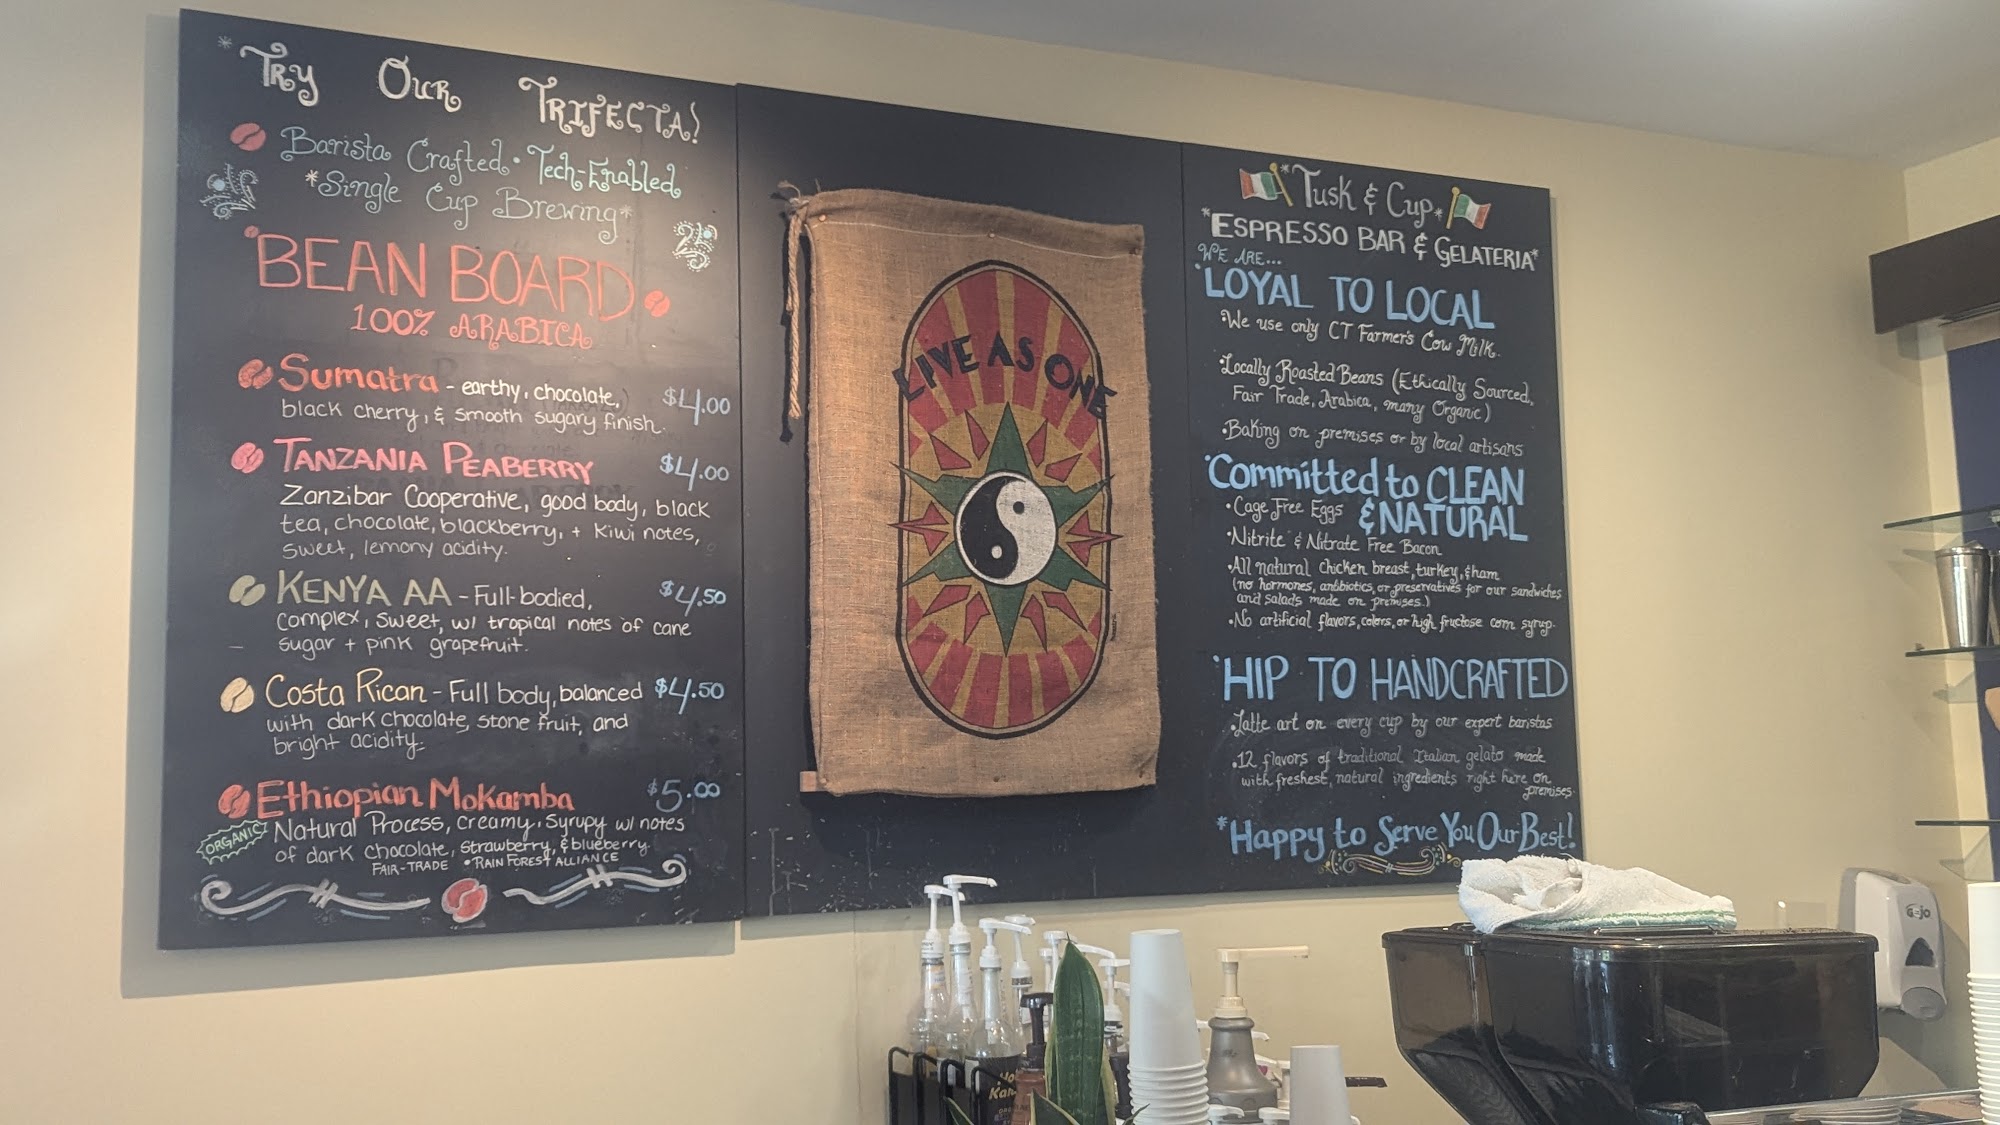 *TRY OUR TRIFECTA!
Barista Crafted • Tech-Enabled
*Single Cup Brewing*
BEAN BOARD
100% ARABICA
Sumatra - earthy, chocolate, $4.00
black cherry, & smooth sugary finish.
TANZANIA PEABERRY $4.00
Zanzibar Cooperative, good body, black
tea, chocolate, blackberry, + kiwi notes,
sweet, lemony acidity.
KENYA AA - Full-bodied, $4.50
complex, sweet, w/ tropical notes of cane
sugar + pink grapefruit.
Costa Rican - Full body, balanced $4.50
with dark chocolate, stone fruit, and
bright acidity.
Ethiopian Mokamba $5.00
ORGANIC
Natural Process, creamy, Syrupy w/ notes
of dark chocolate, strawberry, & blueberry.
FAIR-TRADE • RAIN FOREST ALLIANCE
LIVE AS ONE
*Tusk & Cup*
*ESPRESSO BAR & GELATERIA*
WE ARE...
*LOYAL TO LOCAL
•We use only CT Farmer's Cow Milk.
•Locally Roasted Beans (Ethically Sourced,
Fair Trade, Arabica, many Organic)
•Baking on premises or by local artisans
*Committed to CLEAN
& NATURAL
•Cage Free Eggs
•Nitrite & Nitrate Free Bacon
•All natural chicken breast, turkey, & ham
(no hormones, antibiotics, or preservatives for our sandwiches
and salads made on premises.)
•No artificial flavors, colors, or high fructose corn syrup.
*HIP TO HANDCRAFTED
•Latte art on every cup by our expert baristas
•12 flavors of traditional Italian gelato made
with freshest, natural ingredients right here on
premises.
*Happy to Serve You Our Best!
GOJO